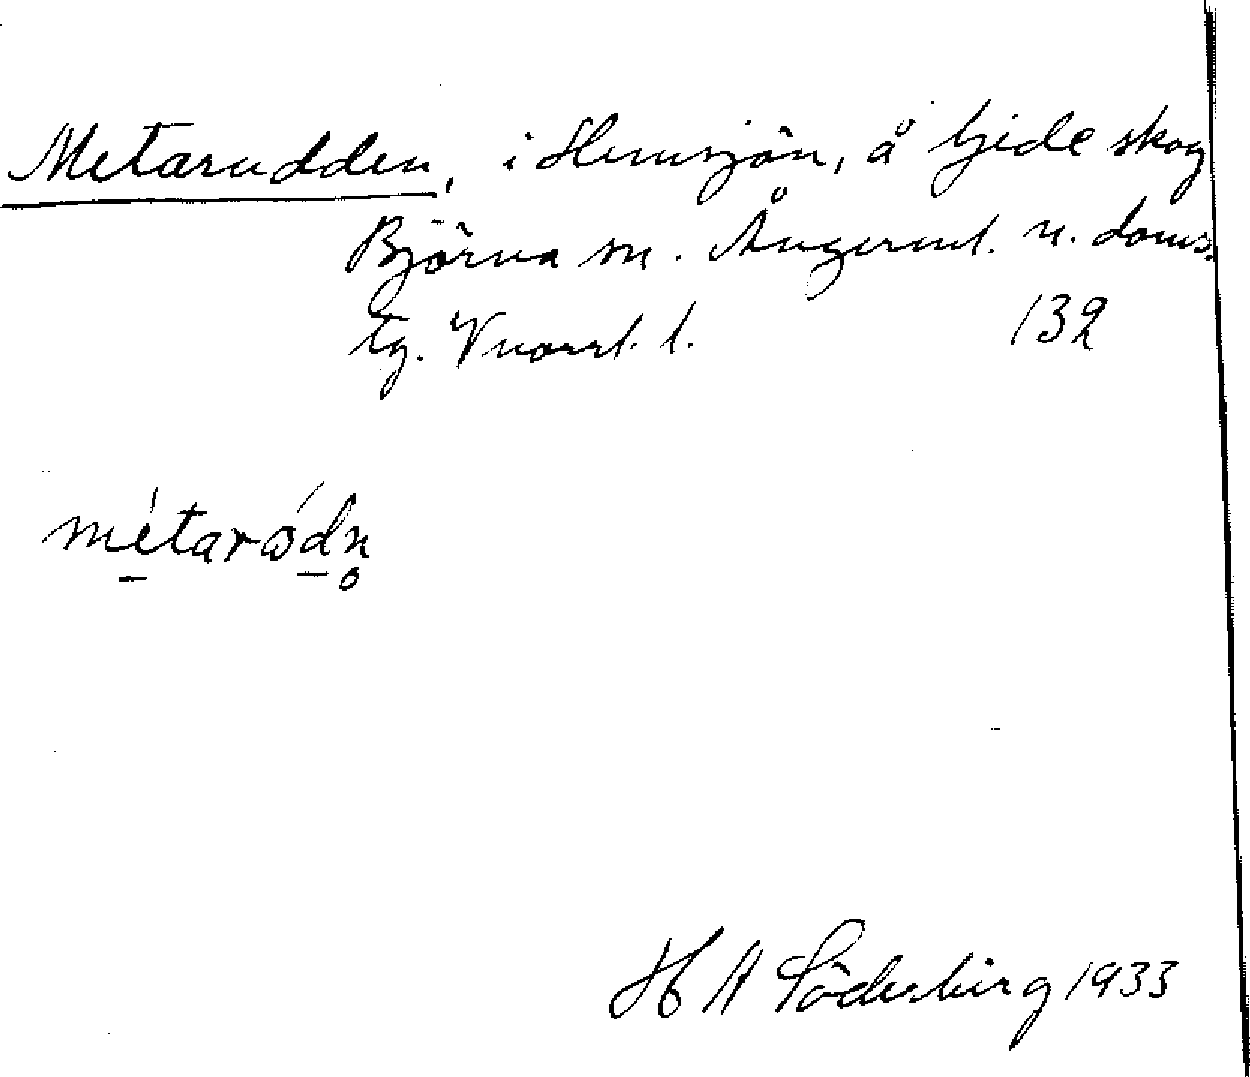 Metarudden, i Hemsjön, å Gideskog
Björna sn. Ångerml. n. doms.
tg. Vnorrl. l. 132
métaródn̥
H A Söderberg 1933